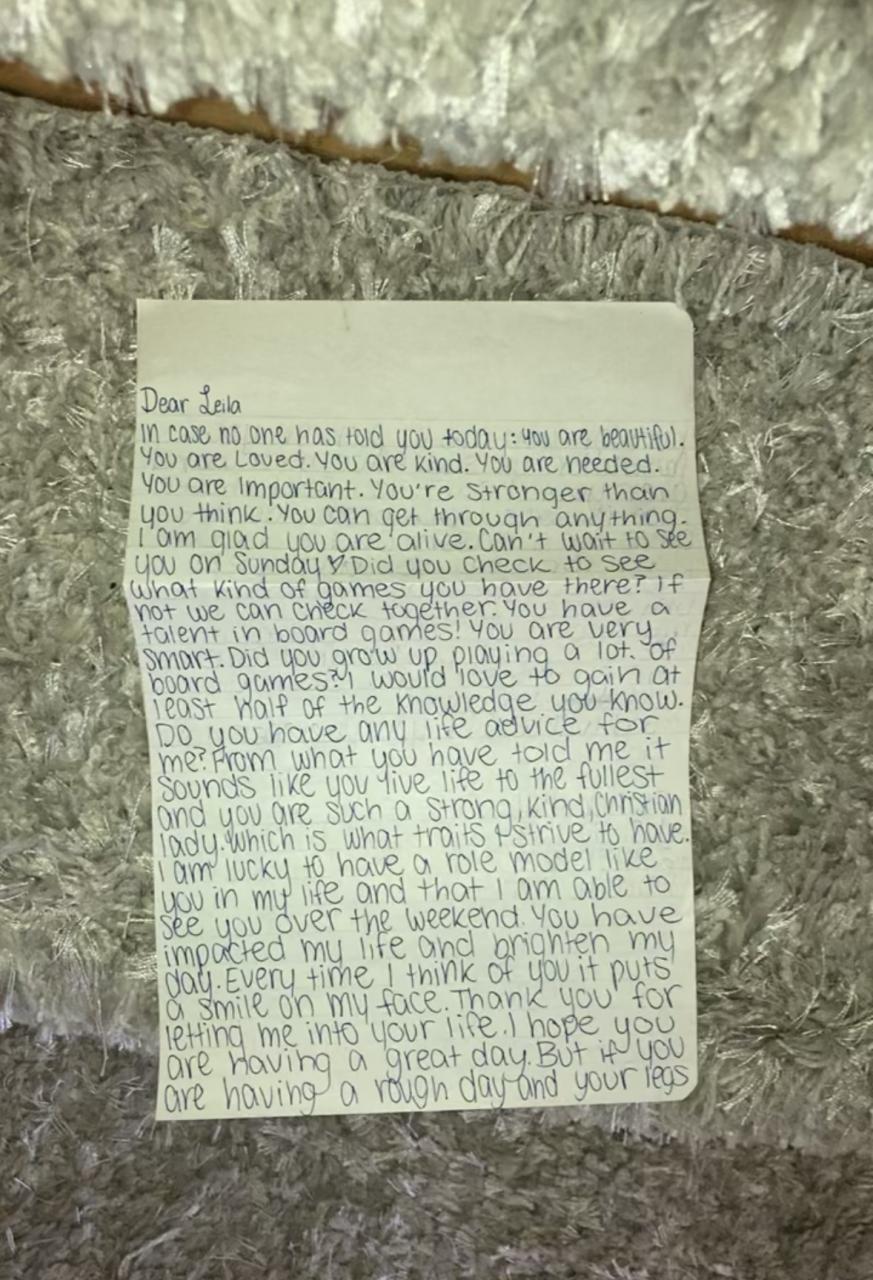 Dear Leila
In case no one has told you today: you are beautiful.
You are Loved. You are kind. You are needed.
You are Important. You're stronger than
you think. You can get through anything.
I am glad you are alive. Can't wait to see
you on Sunday ♡ Did you check to see
what kind of games you have there? If
not we can check together. You have a
talent in board games! You are very
smart. Did you grow up playing a lot of
board games? I would love to gain at
least half of the knowledge you know.
Do you have any life advice for
me? From what you have told me it
sounds like you live life to the fullest
and you are such a strong, kind, Christian
lady. Which is what traits I strive to have.
I am lucky to have a role model like
you in my life and that I am able to
see you over the weekend. You have
impacted my life and brighten my
day. Every time I think of you it puts
a smile on my face. Thank you for
letting me into your life. I hope you
are having a great day. But if you
are having a rough day and your legs